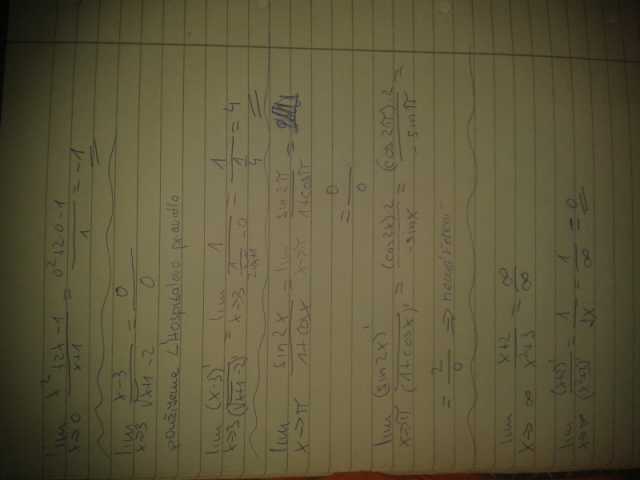 lim x→0 x²+2x-1 / x+1 = 0²+2·0-1 / 1 = -1
lim x→3 x-3 / √x+1 -2 = 0 / 0
používame L'Hospitalovo pravidlo
lim x→3 (x-3)' / (√x+1 -2)' = lim x→3 1 / 1/2√x+1 -0 = 1 / 1/4 = 4
lim x→π sin2x / 1+cosx = lim x→π sin2π / 1+cosπ =
= 0 / 0
lim x→π (sin2x)' / (1+cosx)' = (cos2x)·2 / -sinx = (cos2π)·2 / -sinπ =
= 2 / 0 ⇒
lim x→∞ x+2 / x²+3 = ∞ / ∞
lim x→∞ (x+2)' / (x²+3)' = 1 / 2x = 1 / ∞ = 0